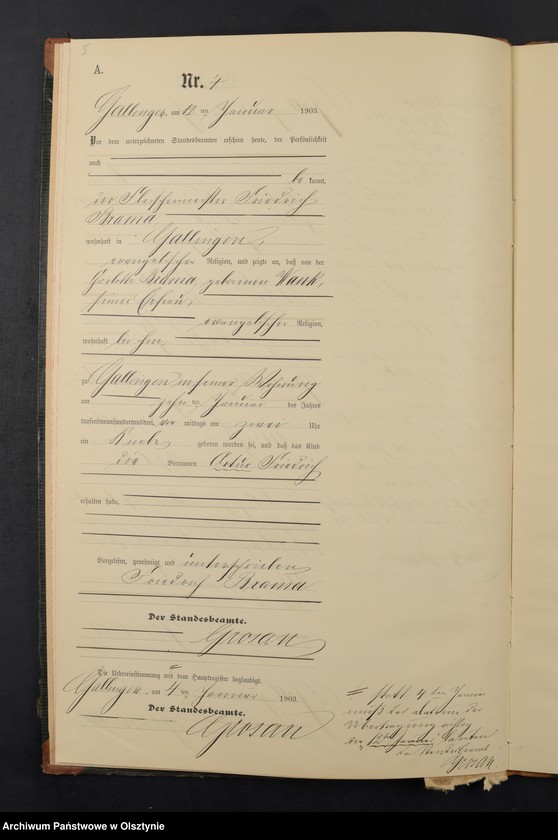 5
A.
Nr. 4
Gallingen, am 12 ten Januar 1903.
Vor dem unterzeichneten Standesbeamten erschien heute, der Persönlichkeit
nach
be kannt,
der Fleischermeister Friedrich
Brama,
wohnhaft in Gallingen,
evangelischer Religion, und zeigte an, daß von der
Brama geborenen Wank,
seiner Ehefrau,
evangelischer Religion,
wohnhaft bei ihm,
zu Gallingen in seiner Wohnung
am zehn ten Januar des Jahres
tausendneunhundertunddrei, vor mittags um zwei Uhr
ein Knabe geboren worden sei, und daß das Kind
die Vornamen Artur Friedrich
erhalten habe,
Vorgelesen, genehmigt und unterschrieben
Friedrich Brama
Der Standesbeamte.
Grosan
Die Uebereinstimmung mit dem Hauptregister beglaubigt.
Gallingen, am 4 ten Januar 1903.
Der Standesbeamte.
Grosan
= statt 4 ten Januar
muß das Datum der
Übertragung
12ten Januar
Der Standesbeamte
Grosan
Archiwum Państwowe w Olsztynie